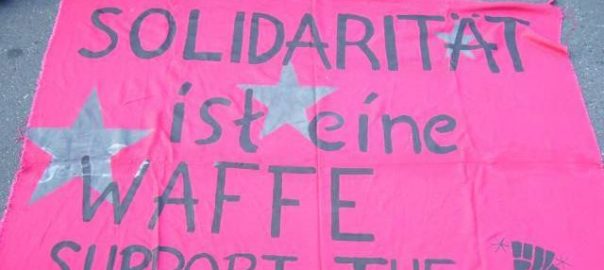 SOLIDARITÄT
ist eine
WAFFE
SUPPORT THE